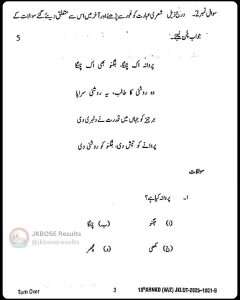 سوال نمبر 2۔ درج ذیل شعری عبارت کو غور سے پڑھئے اور آخر میں اس سے متعلق دیئے گئے سوالات کے
جواب چن لیجئے۔ 5
پروانہ اک پتنگا، جگنو بھی اک پتنگا
وہ روشنی کا طالب، یہ روشنی سراپا
ہر چیز کو جہاں میں قدرت نے دلبری دی
پروانے کو تپش دی، جگنو کو روشنی دی
سوالات
۱۔ پروانہ کیا ہے؟
(ا) جگنو (ب) پتنگا
(ج) مکھی (د) مچھر
JKBOSE Results
@jkboseresults
Turn Over 3 10thAHNKD (W/Z) JKUDT-2025-1001-B